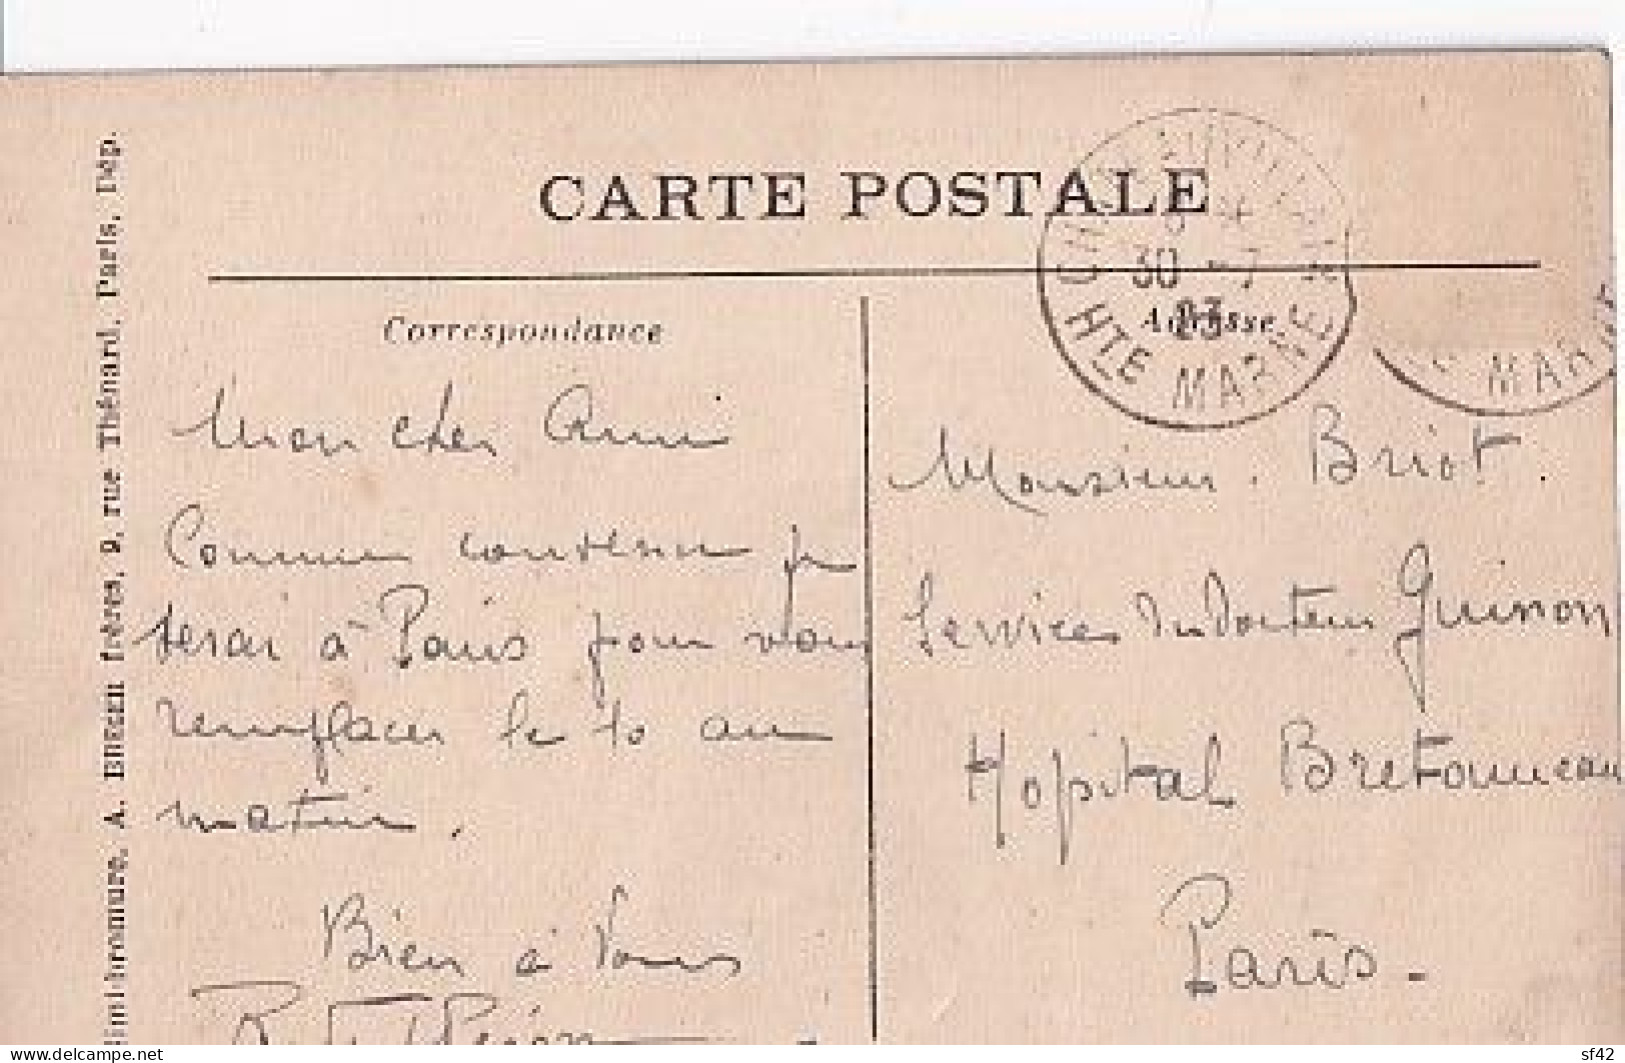 CARTE POSTALE
Correspondance
Adresse
30 - 7
23
HTE MARNE
MARNE
Mon cher Ami
Comme convenu je
serai à Paris pour vous
remplacer le 10 au
matin.
Bien à Vous
Monsieur Briot.
Service du Docteur Guinon
Hopital Bretonneau
Paris.
Simi-bromure. A. BREGER frères, 9, rue Thénard, Paris, Dép.
delcampe.net
sf42